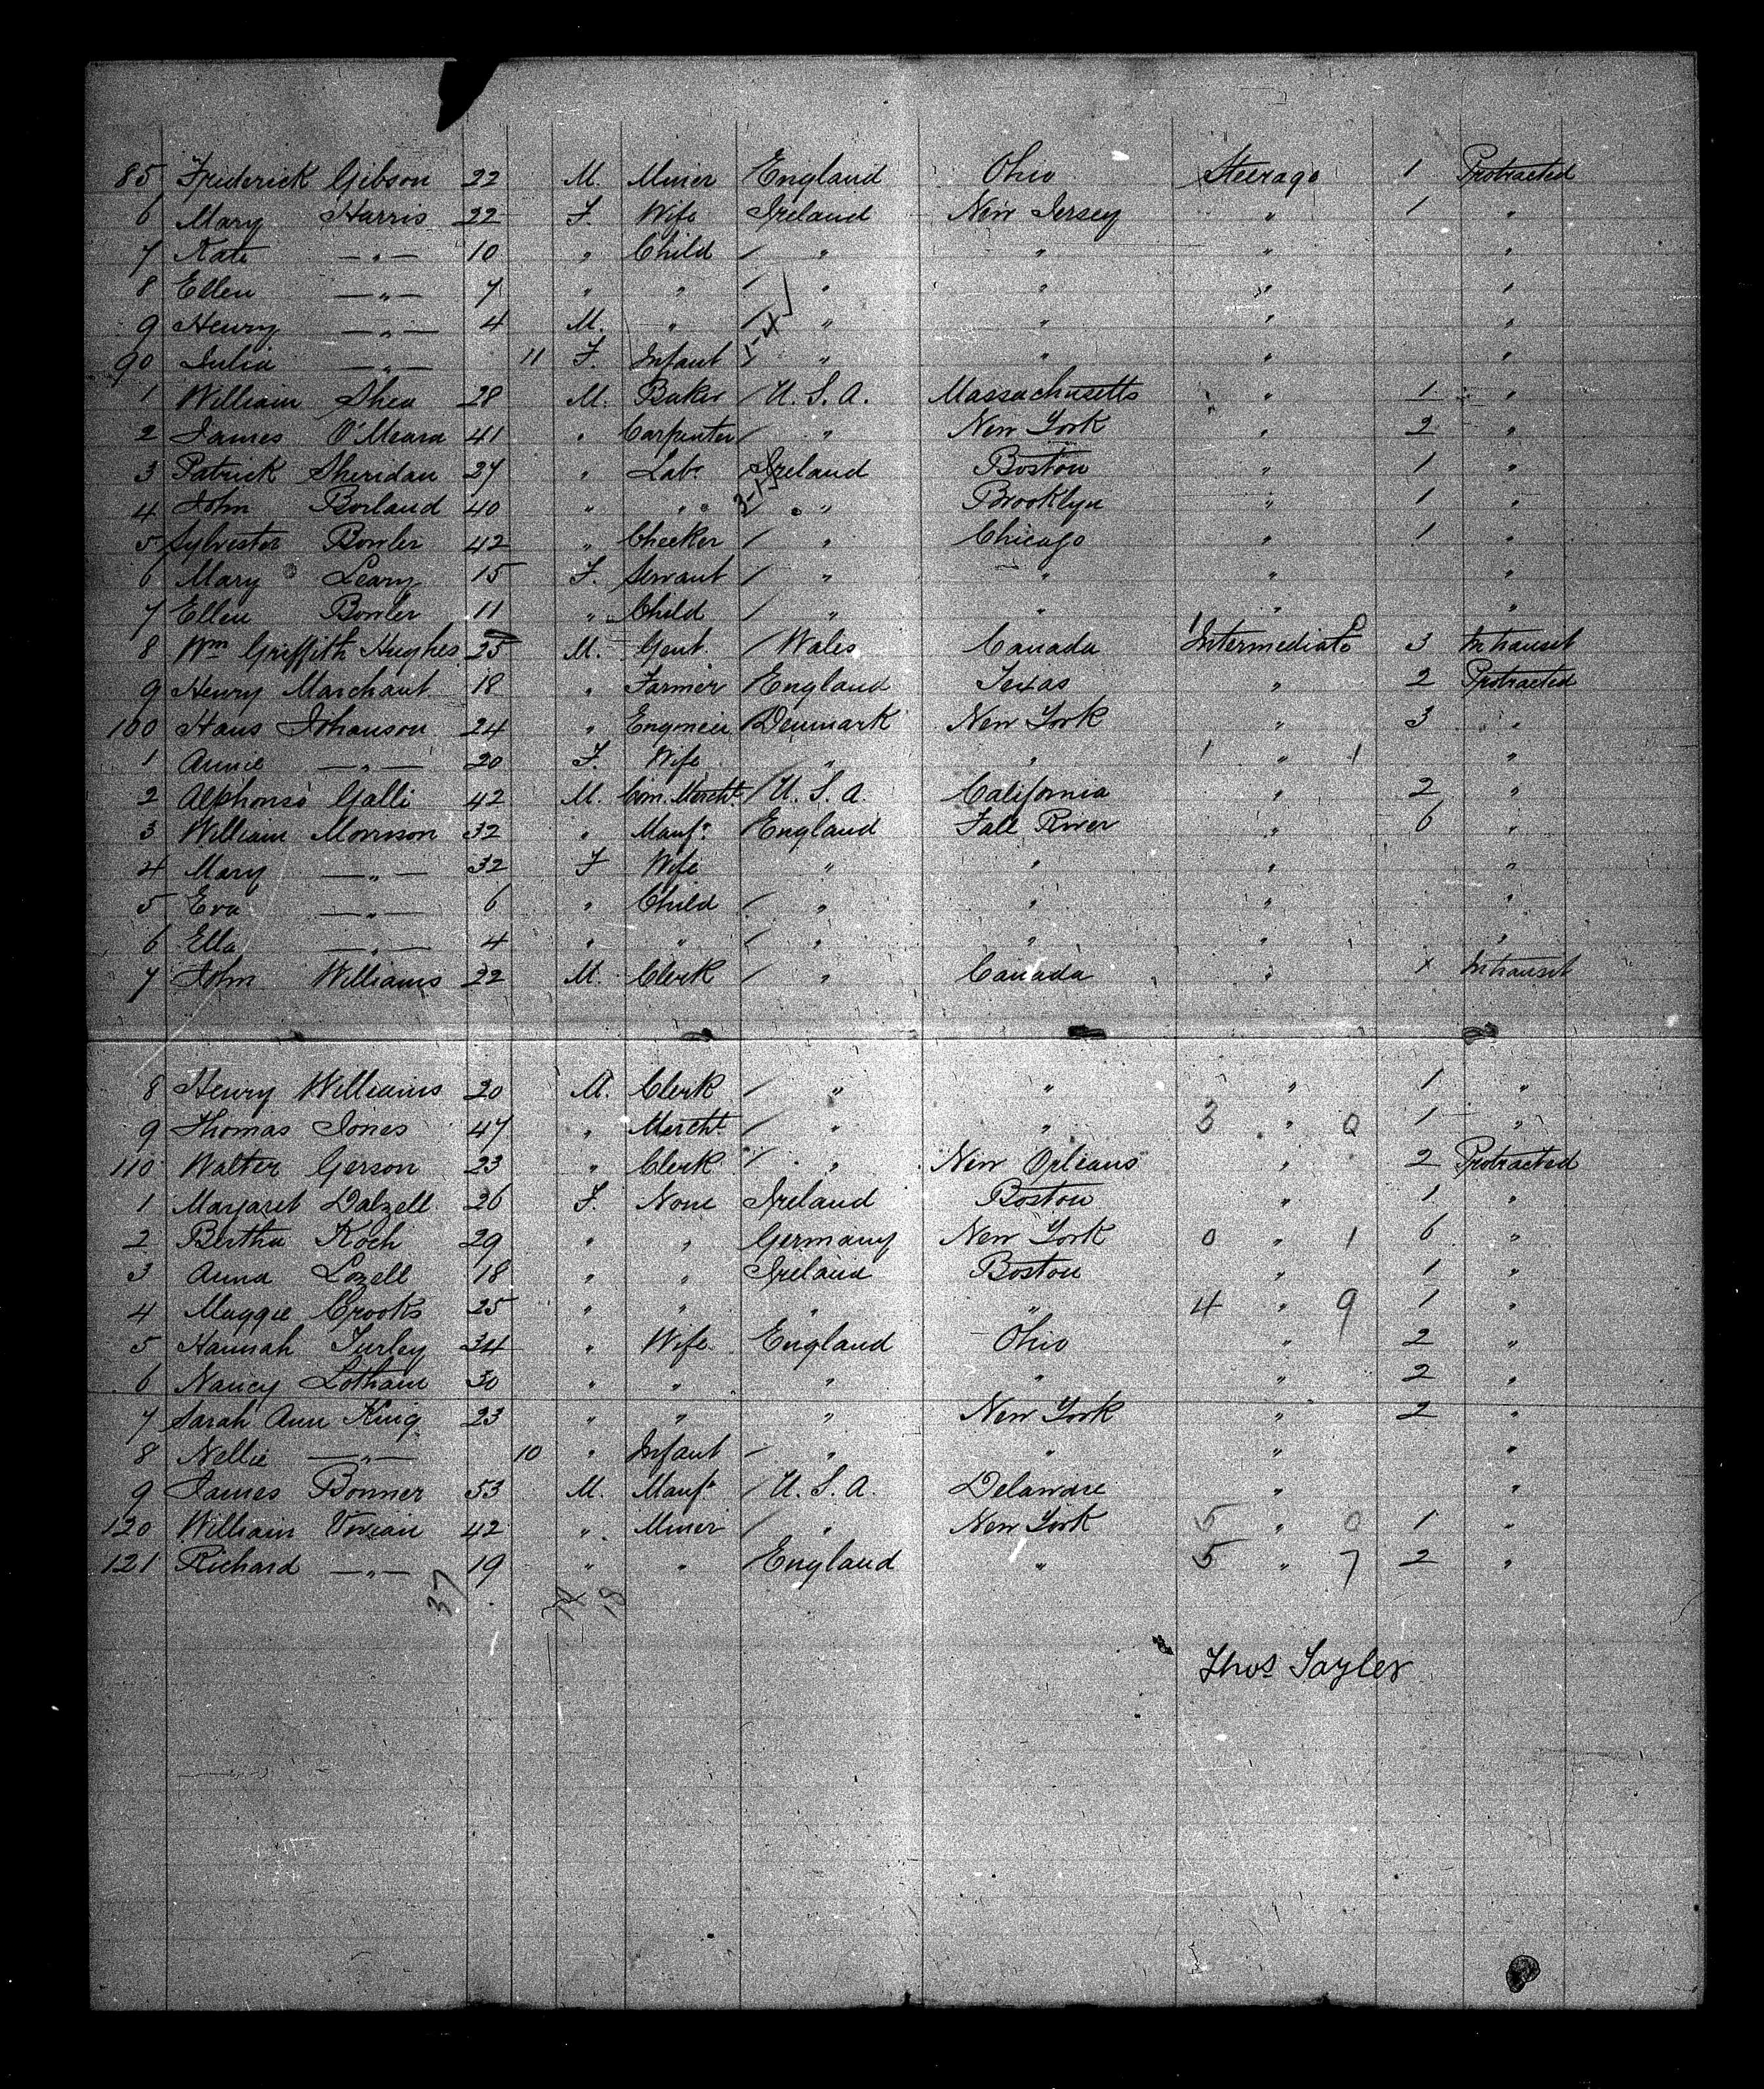 85 Frederick Gibson 22 M. Miner England Ohio Steerage 1 Protracted
6 Mary Harris 22 F. Wife Ireland New Jersey " 1 "
7 Kate —"— 10 " Child / " " " "
8 Ellen —"— 7 " " / " " " "
9 Henry —"— 4 M. " / " " " "
1-4
90 Julia —"— 11 F. Infant / " " " "
1 William Shea 28 M. Baker / U.S.A. Massachusetts " 1 "
2 James O'Meara 41 " Carpenter / " New York " 2 "
3 Patrick Sheridan 27 " Labr Ireland Boston " 1 "
4 John Borland 40 " " " Brooklyn " 1 "
5 Sylvester Bowler 42 " Checker / " Chicago " 1 "
6 Mary Leary 15 F. Servant / " " " "
7 Ellen Bowler 11 " Child / " " " "
8 Wm Griffith Hughes 25 M. Gent / Wales Canada Intermediate 3 Intransit
9 Henry Marchant 18 " Farmer / England Texas " 2 Protracted
100 Hans Johanson 24 " Engineer / Denmark New York " 3 "
1 Annie —"— 20 F. Wife " " 1 " 1 "
2 Alphonso Galli 42 M. Com. Mercht / U.S.A. California " 2 "
3 William Morrison 32 " Manfr / England Fall River " 6 "
4 Mary —"— 32 F Wife " " " "
5 Eva —"— 6 " Child / " " " "
6 Ella —"— 4 " " / " " " "
7 John Williams 22 M. Clerk / " Canada " Intransit
8 Henry Williams 20 M. Clerk / " " " 1 "
9 Thomas Jones 47 " Mercht / " " 3 " 0 1 "
110 Walter Gerson 23 " Clerk / " New Orleans " 2 Protracted
1 Margaret Dalzell 26 F. None Ireland Boston " 1 "
2 Bertha Koch 29 " " Germany New York 0 " 1 6 "
3 Anna Lozell 18 " " Ireland Boston " 1 "
4 Maggie Crooks 25 " " " " 4 " 9 1 "
5 Hannah Turley 34 " Wife England Ohio " 2 "
6 Nancy Lotham 30 " " " " " 2 "
7 Sarah Ann King 23 " " " New York " 2 "
8 Nellie —"— 10 " Infant / " " " "
9 James Bonner 53 M. Manfr / U.S.A. Delaware " "
120 William Vivian 42 " Miner / " New York 5 " 0 1 "
121 Richard —"— 19 " " / England " 5 " 7 2 "
37 18
Thos Tayler